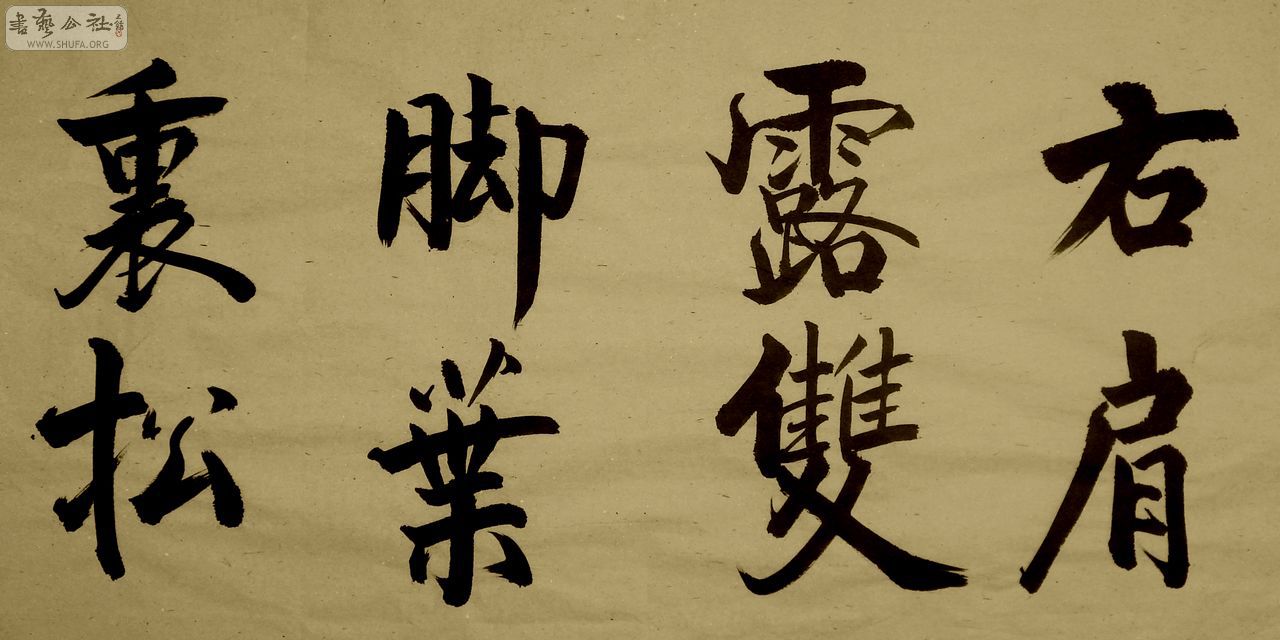 右肩
露雙
脚葉
裏松
書藝公社
WWW.SHUFA.ORG